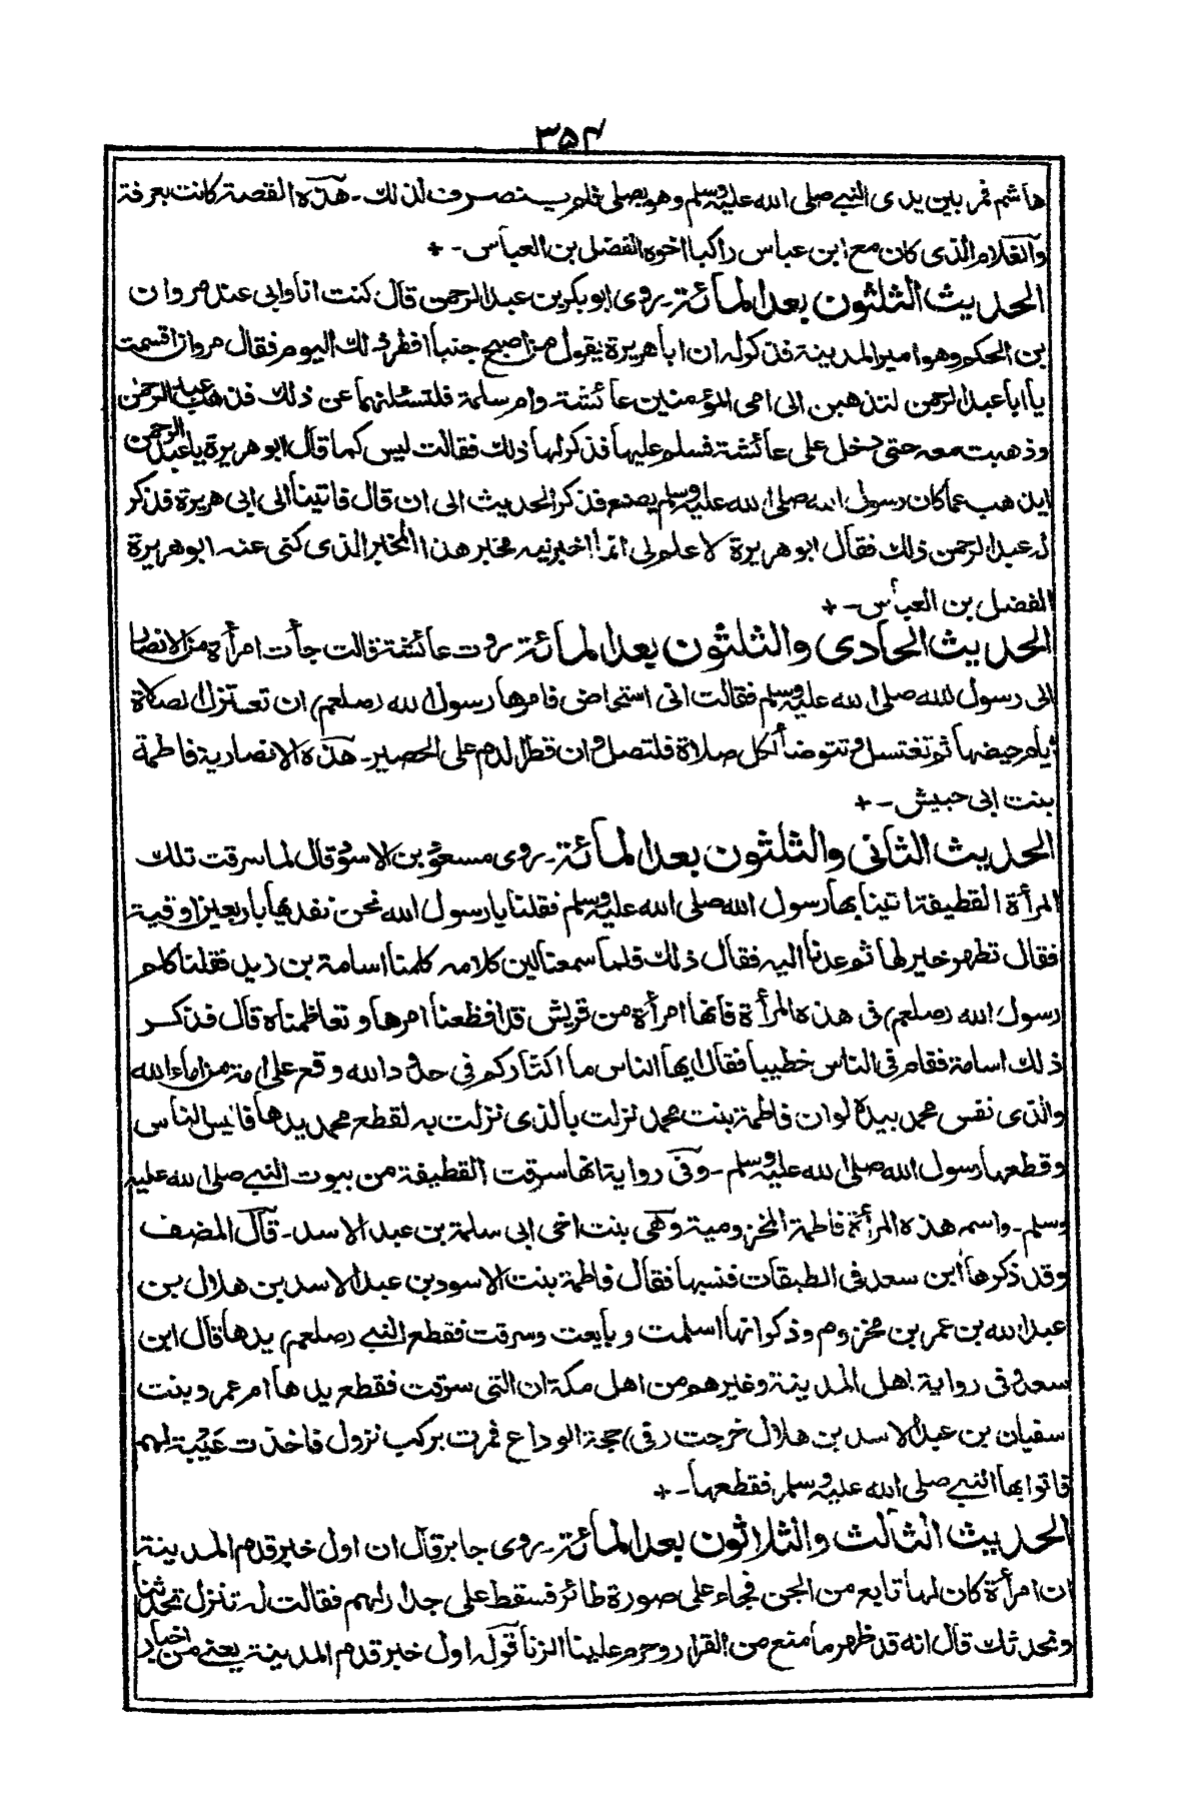 ٣٥٤
هاشم تمر بين يدى النبي صلى الله عليه وسلم وهو يصلى فلم ينصرف لذلك - هذه القصة كانت بعرفة
والغلام الذى كان مع ابن عباس راكبا اخوه الفضل بن العباس - +
الحديث الثلثون بعد المائة - روى ابو بكر بن عبد الرحمن قال كنت انا وابى عند مروان
بن الحكم وهو امير المدينة فذكر له ان ابا هريرة يقول من اصبح جنبا افطر ذلك اليوم فقال مروان اقسمت
يا ابا عبد الرحمن لتذهبن الى امى المؤمنين عائشة وام سلمة فلتسئلنهما عن ذلك فذهب عبد الرحمن
وذهبت معه حتى دخل على عائشة فسلم عليها فذكر لها ذلك فقالت ليس كما قال ابو هريرة يا عبد الرحمن
ايذهب عما كان رسول الله صلى الله عليه وسلم يصنع فذكر الحديث الى ان قال فاتينا الى ابى هريرة فذكر
له عبد الرحمن ذلك فقال ابو هريرة لا علم لى انما اخبرنيه مخبر هذا المخبر الذى كنى عنه ابو هريرة
الفضل بن العباس - +
الحديث الحادى والثلثون بعد المائة روت عائشة قالت جأت امرأة من الانصار
الى رسول الله صلى الله عليه وسلم فقالت انى استحاض فامرها رسول الله (صلعم) ان تعتزل الصلاة
ايام حيضها ثم تغتسل وتتوضأ لكل صلاة فلتصل وان قطر الدم على الحصير - هذه الانصارية فاطمة
بنت ابى حبيش - +
الحديث الثانى والثلثون بعد المائة - روى مسعود بن الاسود قال لما سرقت تلك
المرأة القطيفة اتينا بها رسول الله صلى الله عليه وسلم فقلنا يا رسول الله نحن نفديها باربعين اوقية
فقال تطهر خير لها ثم عدنا اليه فقال ذلك فلما سمعنا لين كلامه كلمنا اسامة بن زيد فقلنا كلم
رسول الله (صلعم) فى هذه المرأة فانها امرأة من قريش قد افظعنا امرها وتعاظمناه قال فذكر
ذلك اسامة فقام فى الناس خطيبا فقال ايها الناس ما اكثاركم فى حد من حدود الله وقع على امة من اماء الله
والذى نفس محمد بيده لو ان فاطمة بنت محمد نزلت بالذى نزلت به لقطع محمد يدها فائيس الناس
وقطعها رسول الله صلى الله عليه وسلم - وفى رواية انها سرقت القطيفة من بيوت النبي صلى الله عليه
وسلم - واسم هذه المرأة فاطمة المخزومية وهى بنت اخى ابى سلمة بن عبد الاسد - قال المصنف
وقد ذكرها ابن سعد فى الطبقات فنسبها فقال فاطمة بنت الاسود بن عبد الاسد بن هلال بن
عبد الله بن عمر بن مخزوم وذكر انها اسلمت وبايعت وسرقت فقطع النبي (صلعم) يدها قال ابن
سعد فى رواية اهل المدينة وغيرهم من اهل مكة ان التى سرقت فقطع يدها ام عمرو بنت
سفيان بن عبد الاسد بن هلال خرجت (فى) حجة الوداع فمرت بركب نزول فاخذت عَيْبة لهم
فاتوا بها النبي صلى الله عليه وسلم فقطعها - +
الحديث الثالث والثلاثون بعد المائة - روى جابر قال ان اول خبر قدم المدينة
ان امرأة كان لها تابع من الجن فجاء على صورة طائر فسقط على جدارهم فقالت له تنزل تحدثنا
ونحدثك قال انه قد ظهر ما منع من القرار وحرم علينا الزنا قوله اول خبر قدم المدينة يعنى من اخبار